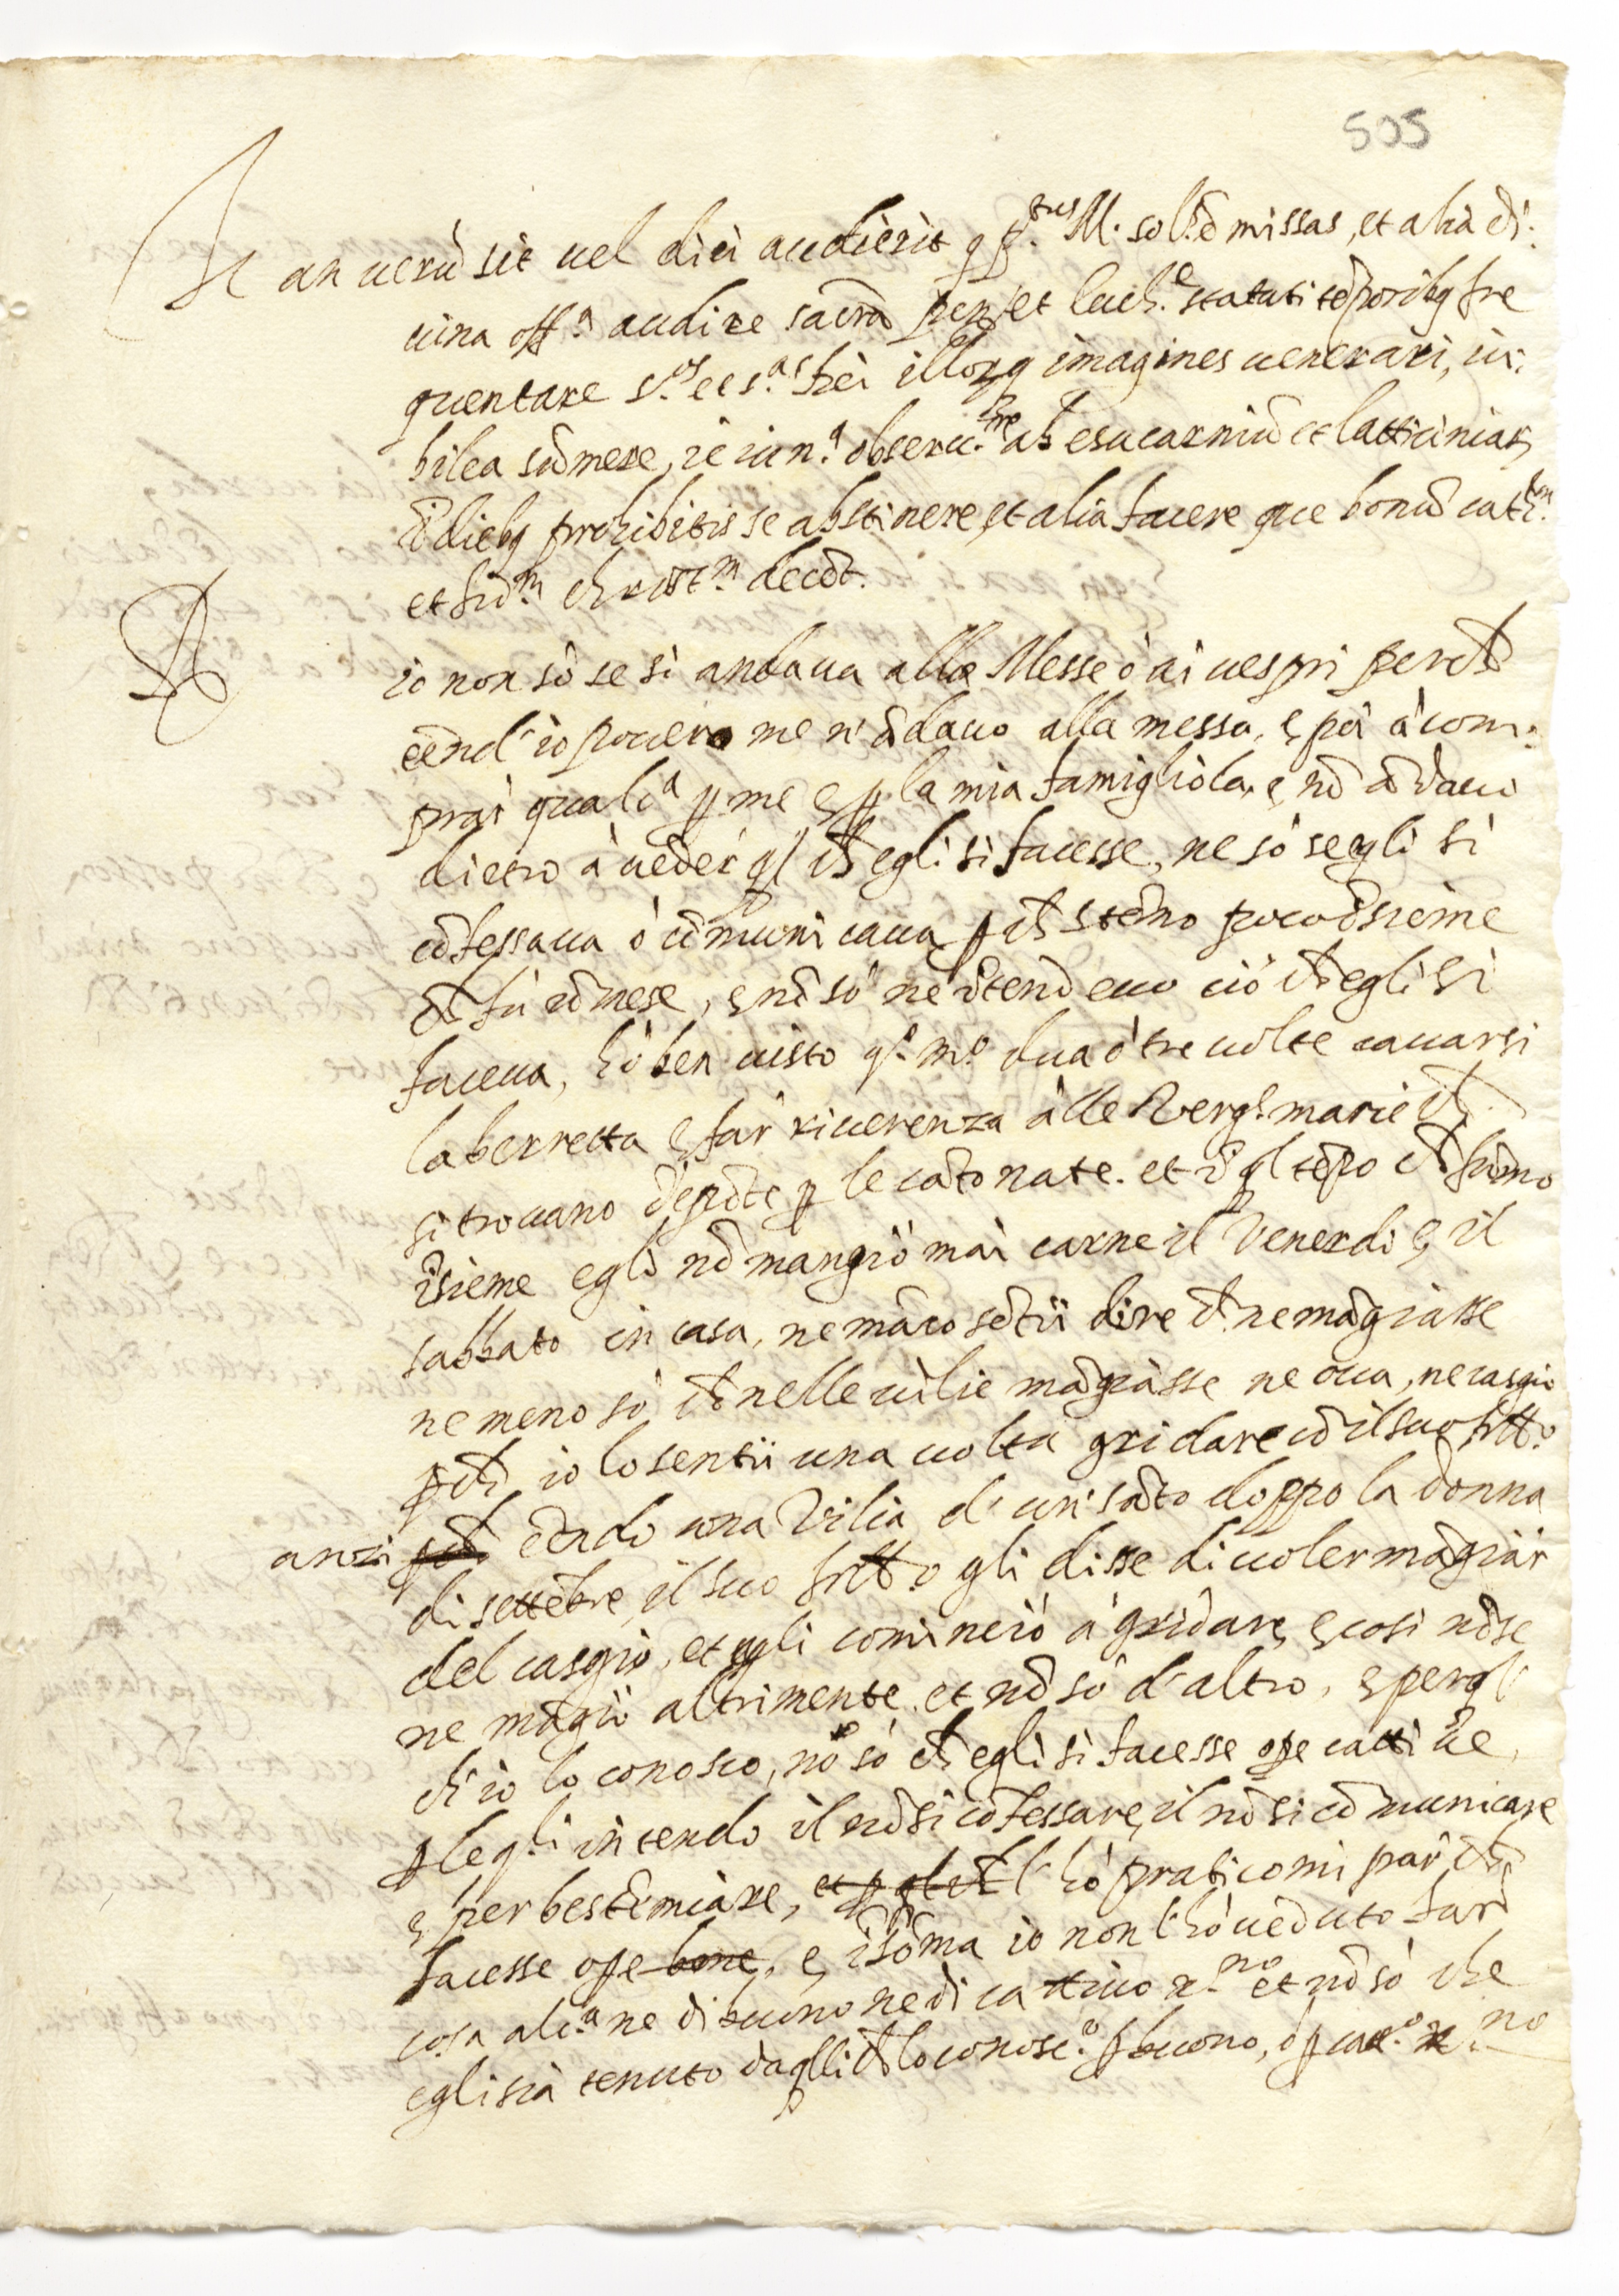 505
It an uerũ sit uel dici audierit q̃ p.tus M. solũ missas, et alia di:
uina off.a audire sacrã pen. et Euch.e statuti tẽporibq fre
quentare s.os et s.as Dei illorq imagines uenerari, iu:
bilea sũmere, ieiun.a obseru.re ab esu carniũ et latticiniar
ĩ diebq prohibitis se abstinere, et alia facere que bonũ cath.cum
et fid.m christ.m decẽt.
R
io non sò se si andaua alle Messe ò ai uespri perch
eẽnd' io pouero me n' ãdauo alla messa, e poi à com:
prar' qualc.a p me e p la mia famigliola, e nõ ãdauo
dietro à ueder' ql ch egli si facesse, ne sò s'egli si
cõfessaua ò cõmunicaua p ch stemo poco ĩsieme
ch fù ũ mese, e nõ sò ne ĩtendeuo ciò ch egli si
faceua, hò ben uisto q.o m.o dua ò tre uolte cauarsi
la berretta e far' riuerenza alle Verg. marie ch
si trouano dipĩte p le cãtonate. et ĩ ql tẽpo ch fũmo
ĩsieme egli nõ mangiò mai carne il Venerdi e il
sabbato in casa, ne mãco sẽtii dire ch ne mãgiasse
ne meno sò ch nelle uilie mãgiasse ne oua, ne casgio
p ch io lo sentii una uolta gridare cõ il suo frãtt.o
anzi p ch eẽndo una Vilia d' un' sãto doppo la dõnna
di settẽbre, il suo frãtt.o gli disse di uoler mãgiar
del casgio, et egli cominciò à gridare, e cosi nõ se
ne mãgiò altrimente. et nõ sò d' altro, e per ql
ch' io lo conosco, nõ sò ch egli si facesse ope cattiue,
p le q.li intendo il nõ si cõfessare, il nõ si cõmunicare
e per bestẽmiare, et p ql ch l' hò praticomi par ch
facesse ope bone, e ĩ sõma io non l' hò ueduto far
cosa alc.a ne di buono ne di cattiuo x.no et nõ sò che
egli sia tenuto da qlli ch lo conosc.o p buono, ò p cat.o x.no